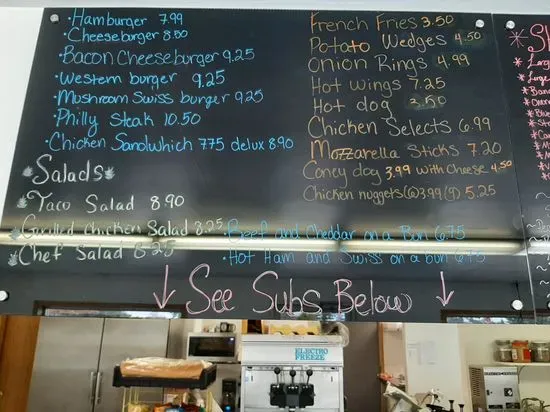 Hamburger 7.99
Cheeseburger 8.50
Bacon Cheeseburger 9.25
Western burger 9.25
Mushroom Swiss burger 9.25
Philly Steak 10.50
Chicken Sandwhich 7.75 delux 8.90
Salads
Taco Salad 8.90
Grilled Chicken Salad 8.25
Chef Salad 8.25
French Fries 3.50
Potato Wedges 4.50
Onion Rings 4.99
Hot wings 7.25
Hot dog 2.50
Chicken Selects 6.99
Mozzarella Sticks 7.20
Coney dog 3.99 with Cheese 4.50
Chicken nuggets (6) 3.99 (9) 5.25
Beef and Cheddar on a Bun 6.75
Hot Ham and Swiss on a bun 6.75
See Subs Below
ELECTRO FREEZE